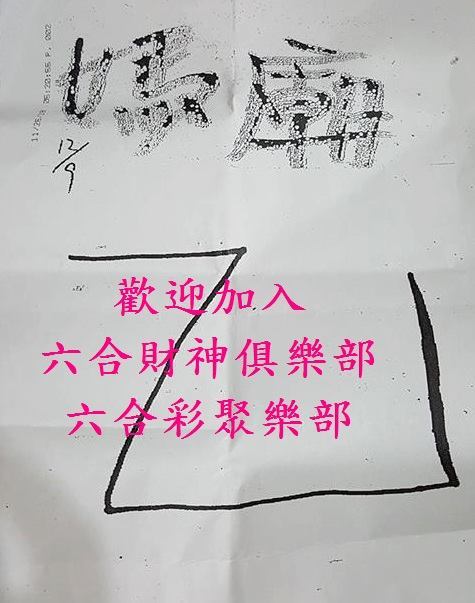 媽廟
P. 002
12/9
歡迎加入
六合財神俱樂部
六合彩聚樂部